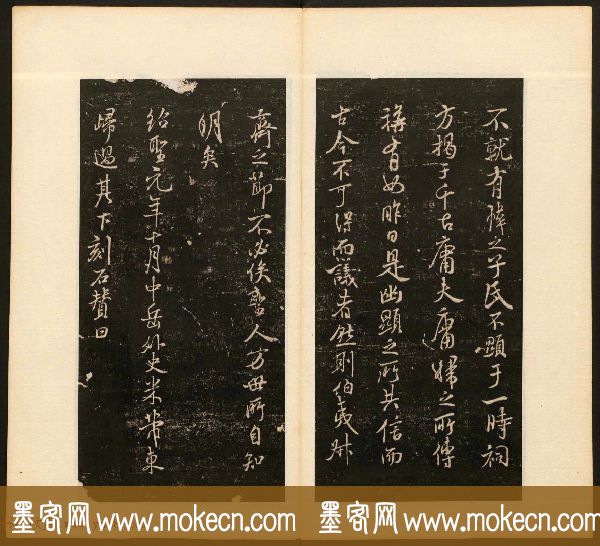 不就有之子民不顯于一時祠
方揭于千古庸夫庸婦之所傳
稱有如昨日是幽顯之所共信而
古今不可得而議者然則伯夷叔
齊之節不必俟聖人方毋所自知
明矣
紹聖元年十月中岳外史米芾東
歸過其下刻石贊曰
墨客网 www.mokecn.com
墨客网 www.mokecn.com